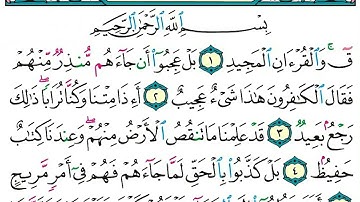 بِسْمِ ٱللَّهِ ٱلرَّحْمَٰنِ ٱلرَّحِيمِ
قٓ وَٱلْقُرْءَانِ ٱلْمَجِيدِ ١ بَلْ عَجِبُوٓا۟ أَن جَآءَهُم مُّنذِرٌ مِّنْهُمْ
فَقَالَ ٱلْكَٰفِرُونَ هَٰذَا شَىْءٌ عَجِيبٌ ٢ أَءِذَا مِتْنَا وَكُنَّا تُرَابًا ذَٰلِكَ
رَجْعٌۢ بَعِيدٌ ٣ قَدْ عَلِمْنَا مَا تَنقُصُ ٱلْأَرْضُ مِنْهُمْ وَعِندَنَا كِتَٰبٌ
حَفِيظٌۢ ٤ بَلْ كَذَّبُوا۟ بِٱلْحَقِّ لَمَّا جَآءَهُمْ فَهُمْ فِىٓ أَمْرٍ مَّرِيجٍ